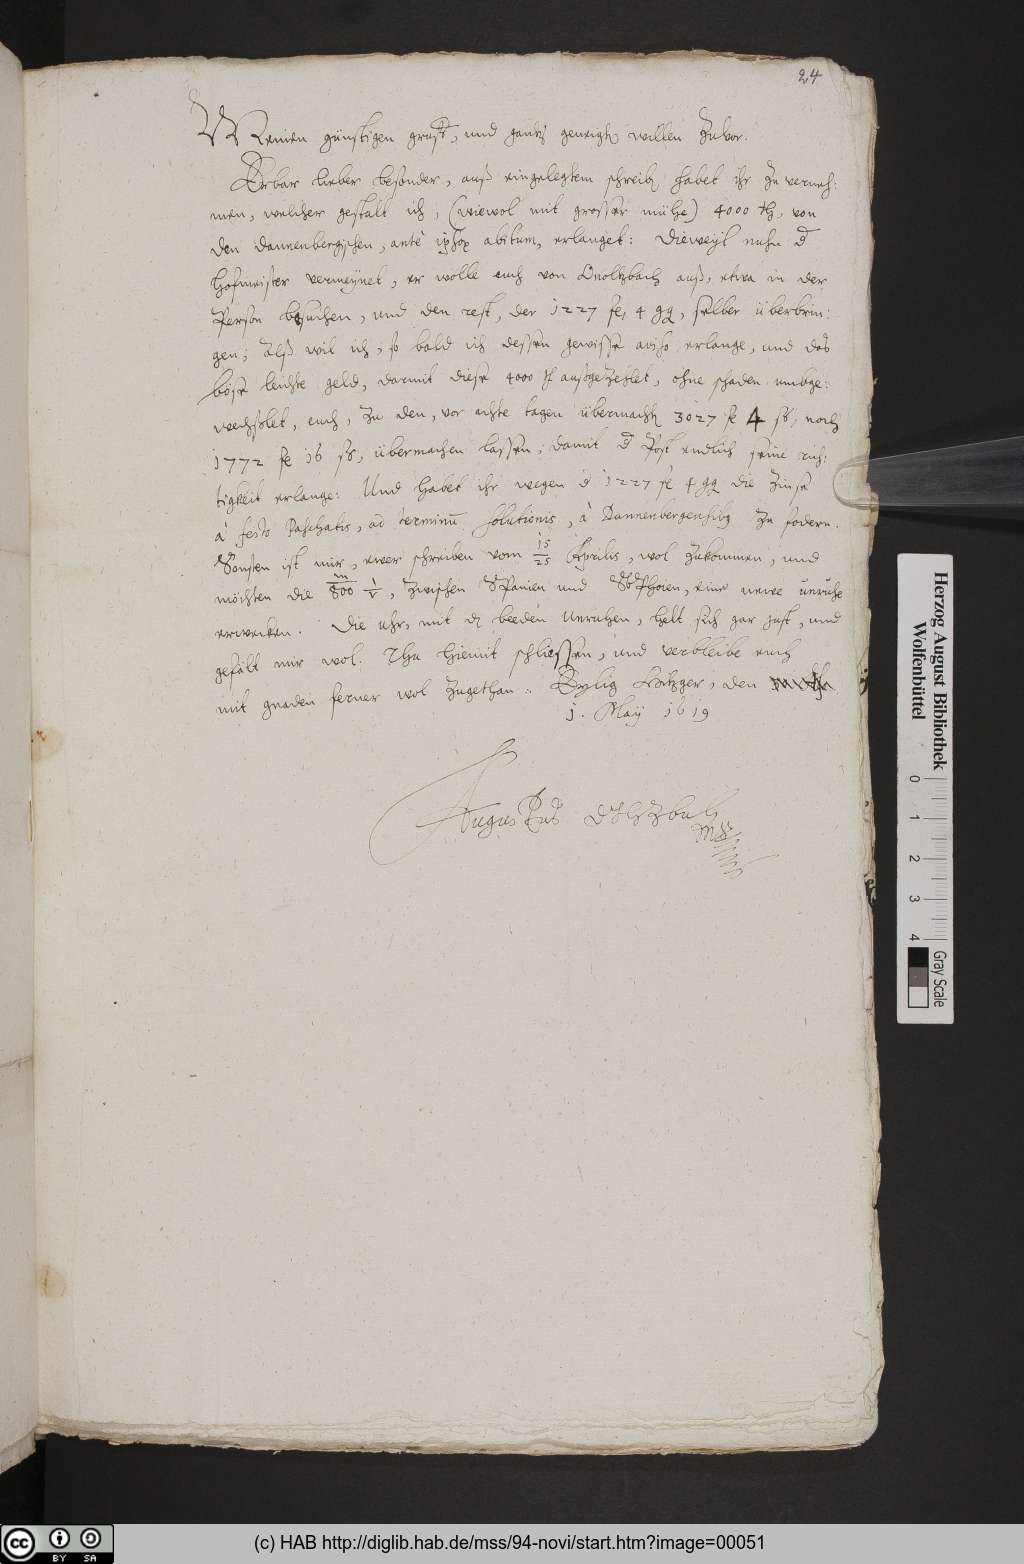 24
Meinen günstigen gruß, und gantz geneigten willen zuvor.
Erbar lieber besonder, auß eingelegtem schreiben habet ihr zu verneh:
men, welcher gestalt ich, (wiewol mit grosser mühe) 4000 th, von
den Dannenbergischen, ante abitum, erlanget: Dieweyl nuhn d
hofmeister vermeynet, er wolle euch von Onoltzbach auß, etwa in der
Person besuchen, und den rest, der 1227 fl, 4 gg, selber überbrin:
gen; Alß wil ich, so bald ich dessen gewisse aviso erlange, und das
böse leichte geld, darmit diese 4000 th außgezehlet, ohne schaden umbge:
wechßlet, euch, zu den, vor achte tagen übermacht 3027 fl 4 ß, noch
1772 fl 16 ß, übermachen lassen, damit d Post endlich seine rich:
tigkeit erlange: Und habet ihr wegen d 1227 fl 4 gg die Zinse
à festo Paschatis, ad terminum solutionis, à Dannenbergensibus zu fodern.
Sonsten ist mir, ewer schreiben vom 15/25 Aprilis, wol zukommen, und
möchten die 800, zwischen Spanien und, eine newe unruhe
erwecken. Die uhr, mit den beeden Unruhen, helt sich gar just, und
gefält mir wol. Thu hiemit schliessen, und verbleibe euch
mit gnaden ferner wol zugethan. Eylig, den
1. May 1619
Augustus
(c) HAB http://diglib.hab.de/mss/94-novi/start.htm?image=00051
Herzog August Bibliothek
Wolfenbüttel
0 1 2 3 4
Gray Scale
cc BY SA